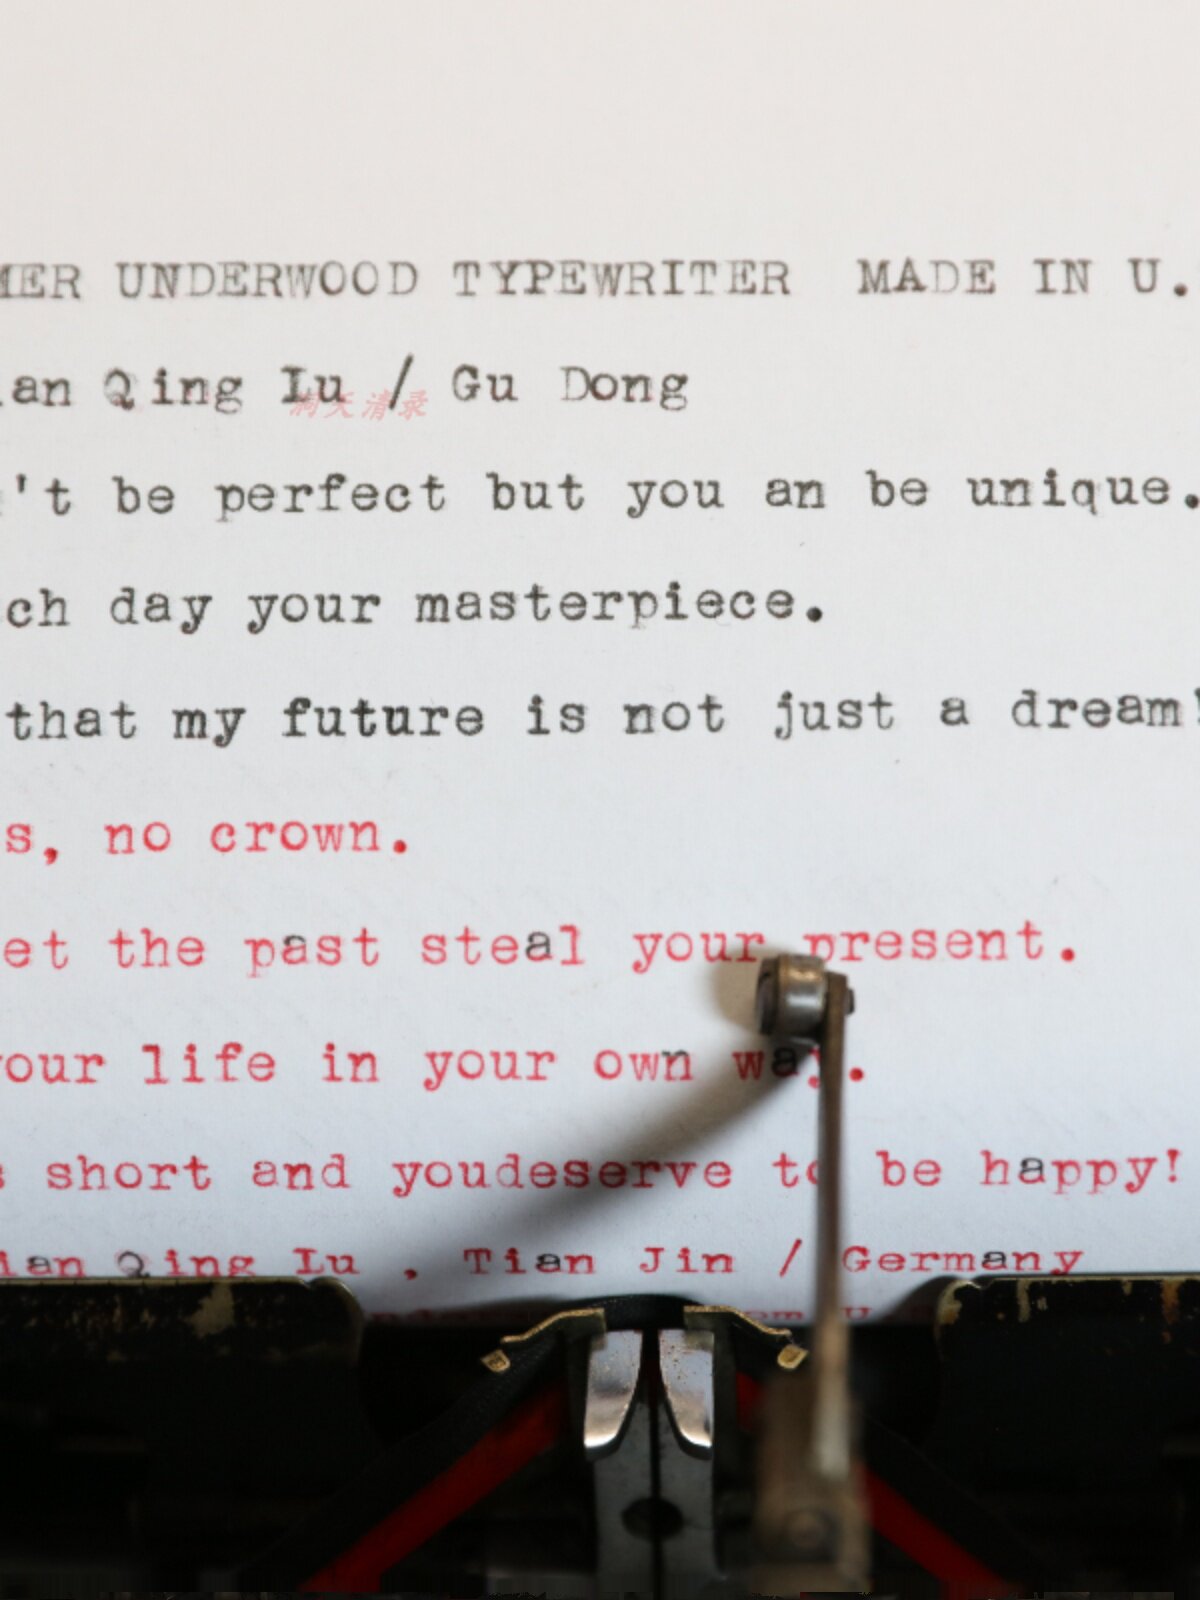 MER UNDERWOOD TYPEWRITER MADE IN U.
ian Qing Lu / Gu Dong
洞天清录
't be perfect but you an be unique.
ch day your masterpiece.
that my future is not just a dream!
s, no crown.
et the past steal your present.
our life in your own way.
s short and youdeserve to be happy!
ian Qing Lu , Tian Jin / Germany